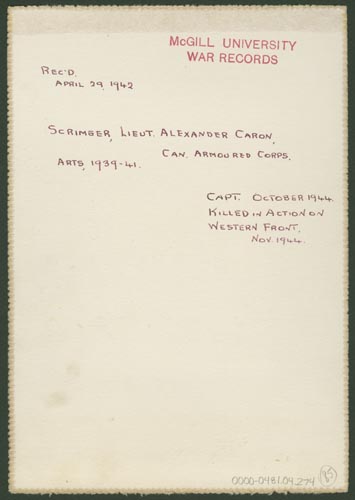 McGILL UNIVERSITY
WAR RECORDS
REC'D.
APRIL 29, 1942
SCRIMGER, LIEUT. ALEXANDER CARON,
CAN. ARMOURED CORPS.
ARTS, 1939-41.
CAPT. OCTOBER 1944.
KILLED IN ACTION ON
WESTERN FRONT,
NOV. 1944.
0000-0481.04.274
85